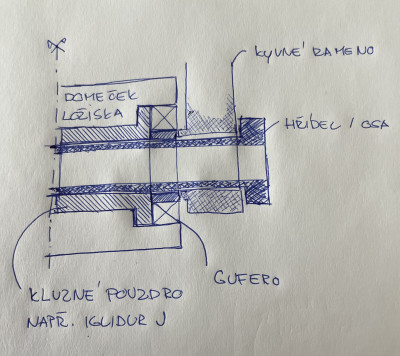 KYVNÉ RAMENO
DOMEČEK
LOŽISKA
HŘÍDEL / OSA
GUFERO
KLUZNÉ POUZDRO
NAPŘ. IGLIDUR J